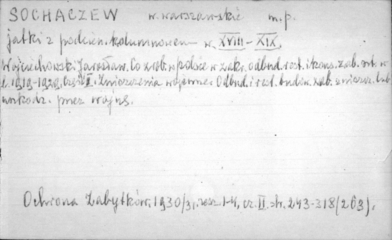 SOCHACZEW w. warszawskie m.p.
jatki z podcien. kolumnowem w. XVIII-XIX.
Wojciechowski Jarosław. Co zrob. w Polsce w zakr. odbud. rest. i kons. zab. art. w
l. 1919-1929. Cz. II. Zniszczenia wojenne. Odbud. i rest. budow. zab. zniszcz. lub
uszkodz. przez wojnę.
Ochrona Zabytków, 1930/31, zesz. 1-4, cz. II. str. 243-318 (263).